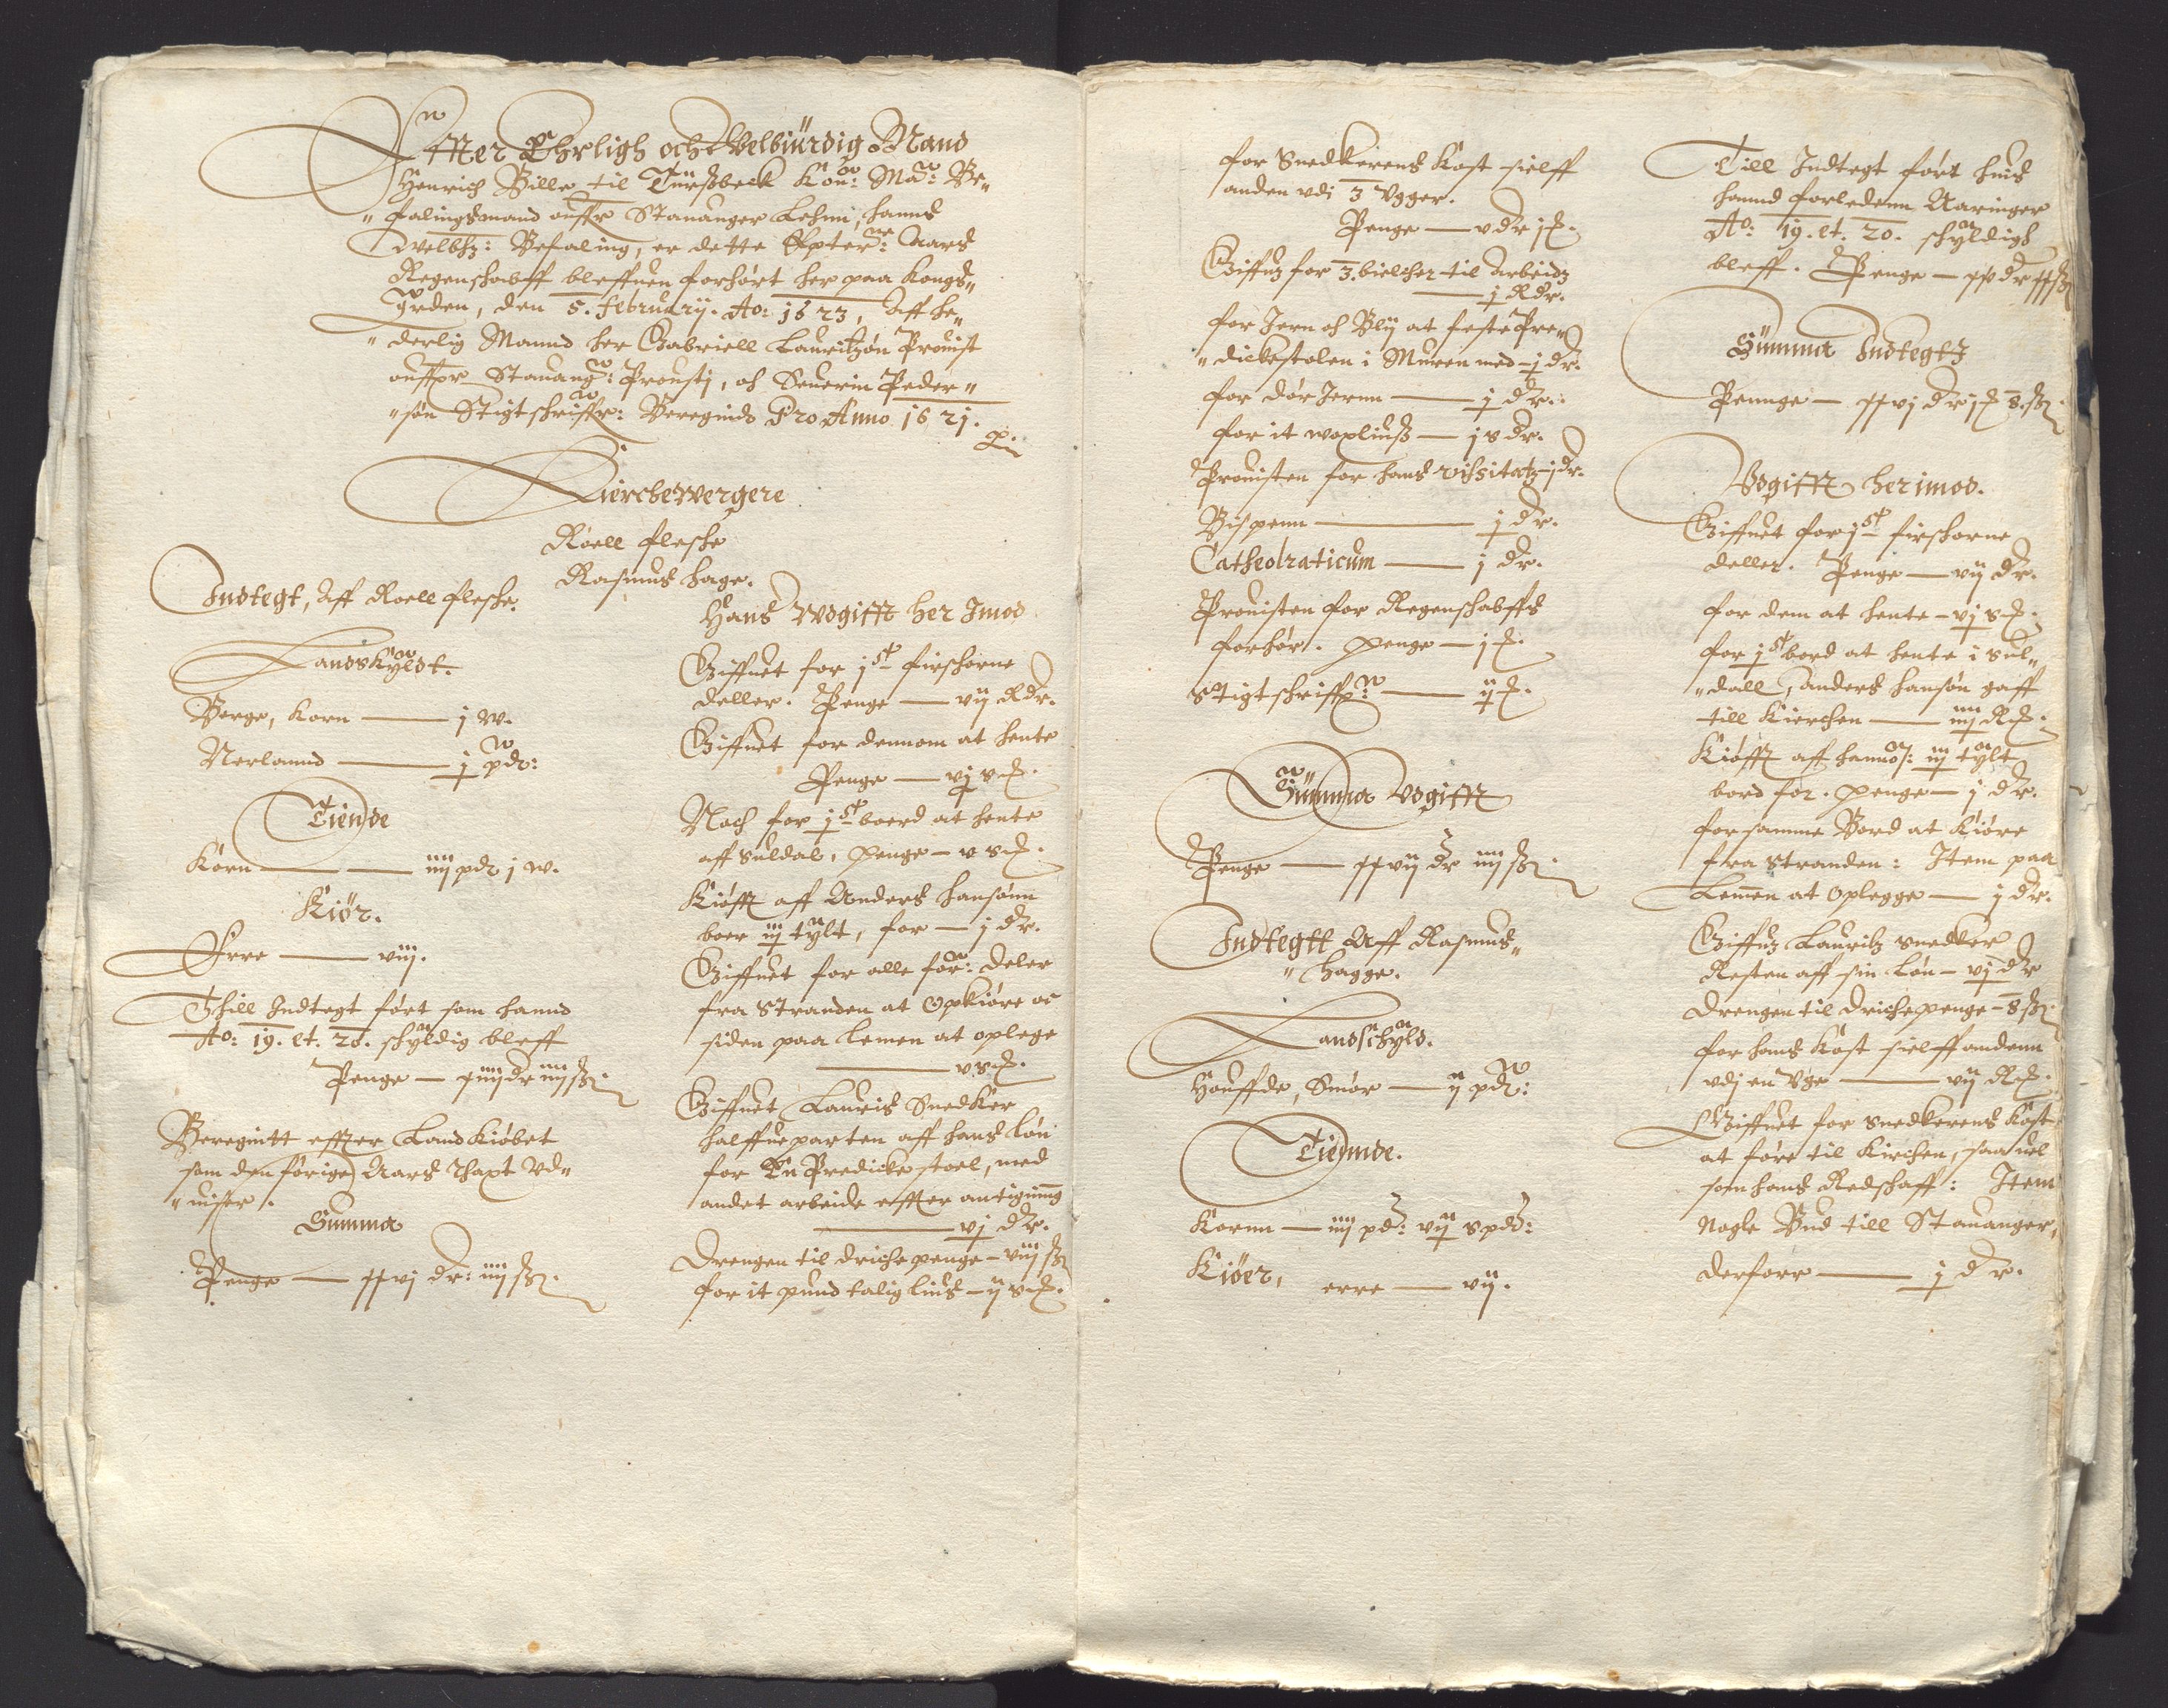 Effter Ehrligh och Welbiürdig Mand
Henrich Bille til Türßbeck Kon: Ma: Be„
„falingsmand offuer Stauanger Lehnn, hanns
Welbh: Befaling, er dette Epter:ne Aars
Regenschabff bleffuen forhört her paa Kongs„
„gården, den 5. februarij. Ao: 1623, Aff he„
„derlig Mannd her Gabriell Lauritzön Prouist
offuer Stauang: Prousti, oh Seuerin Peder„
„sön Stigtschriffr: Beregnids Pro Anno 1621.
Kierchewergere
Roell fleske
Rasmus hage.
Indtegt, Aff Roell fleske.
Landskyldt.
Berge, Korn — j w.
Nerlannd — j pdr:
Tiende
Korn — iiij pdr j w.
Kiör.
Erre — viij.
Thill Indtegt fört som hannd
Ao: 19. et. 20. schyldig bleff
Penge — xiiij dr iiij ß.
Beregnitt effter Landkiöbet
som den förige Aars Thaxt Vd„
„uiser.
Summa
Penge — xxvj dr: iiij ß.
Hans Wdgifft her Imod
Giffuet for j st firskorne
deller. Penge — vij Rdr.
Giffuet for dennom at hente
Penge — vj
Noch for j st boerd at hente
aff Suldal, penge — v
Kiöfft aff Anders hansönn
boer iij tylt, for — j dr.
Giffuet for alle for: deler
fra Stranden at Opkiöre oc
siden paa Lemen at oplege
— v
Giffuet Lauris Snedker
halffueparten aff hans lön
for En Predickestoel, med
andet arbeide effter antignning
— vj dr.
Drengen til drickepenge — viij ß
for it pund talig lius — ij
for Snedkerens Kost sielff
anden vdi 3 Vgger.
Penge — v dr j
Giffuet for 3. bielcher til Arbeidet
— j Rdr.
for Jern oh Blij at feste Pre„
„dickestolen i Muren med — j dr.
for dör Jernn — j dr.
for it woxliuß — j s dr.
Prouisten for hans visitatz — j dr.
Bispenn — j dr.
Cathedraticum — j dr.
Prouisten for Regenschabffs
forhör. penge — j
Stigtschriffr: — ij
Summa Vdgifft
Penge — xxvij dr iiij ß.
Indtegtt Aff Rasmus„
„hagge.
Landschyld.
Houffde, Smör — ij pdr:
Tiennde.
Kornn — iiij pd: vij s pdr:
Kiöer, erre — vij.
Till Indtegt fört huis
hannd forledenn Aaringer
Ao: 19. et. 20. schyldigh
bleff. Penge — xv dr xx ß
Summa Indtegtz
Pennge — xxvj dr j 8. ß.
Vdgifft her imod.
Giffuet for j st firskorne
deller. Penge — vij dr.
for dem at hente — vj
for j st bord at hente i Sul„
„dall, Anders hansön gaff
till Kierchen — iiij
Kiöfft aff hannd: iij tylt
bord for. penge — j dr.
for samme Bord at Kiöre
fra Stranden: Item paa
Lemen at Oplegge — j dr.
Giffuet Lauritz Snedker
Resten aff sin lön — vj dr
Drengen til drickepenge — 8 ß.
for hans Kost sielff andenn
vdj en Vge — vij
Giffuet for Snedkerens Kost
at före til Kirchen, saa uel
som hans Redschaff: Item
Nogle Bud till Stauanger,
derforr — j dr.